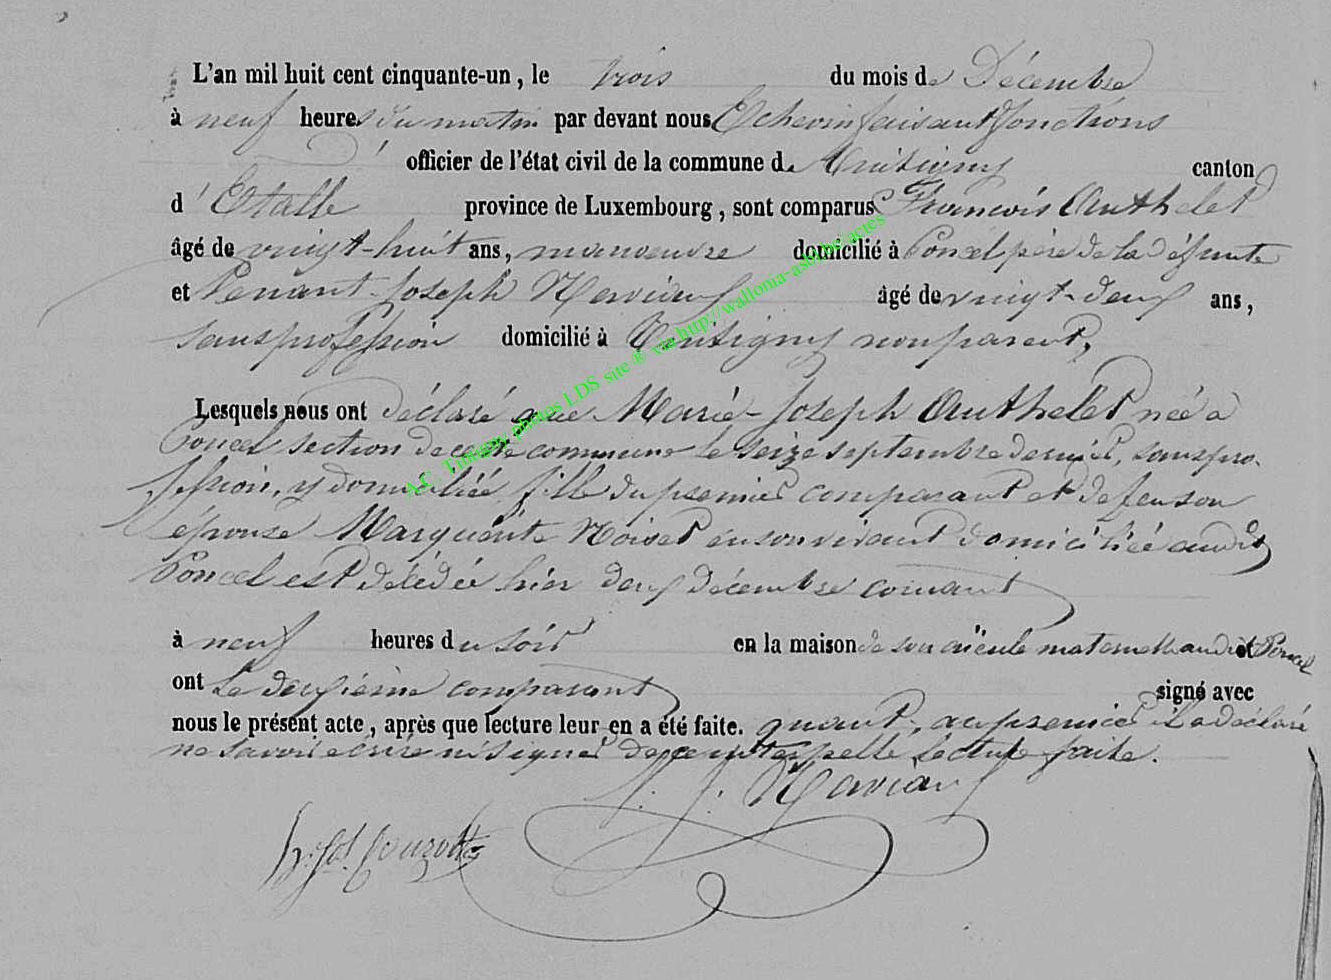 L'an mil huit cent cinquante-un, le trois du mois de Décembre
à neuf heures du matin par devant nous Echevin faisant fonctions
d' officier de l'état civil de la commune de Tintigny canton
d'Etalle province de Luxembourg, sont comparus François Authelet
âgé de vingt-huit ans, manoeuvre domicilié à Poncel père de la défunte
et Joseph âgé de vingt-deux ans,
sans profession domicilié à Tintigny non parent,
Lesquels nous ont déclaré que Marie-Joseph Authelet née à
Poncel section de cette commune le seize septembre dernier, sans pro-
fession, y domiciliée, fille du premier comparant et de feu son
épouse Marguerite Noiset en son vivant domiciliée audit
Poncel est décédée hier deux décembre courant
à neuf heures du soir en la maison de son aïeule maternelle audit Poncel
ont Le deuxième comparant signé avec
nous le présent acte, après que lecture leur en a été faite. quant au premier il a déclaré
ne savoir écrire ni signer de ce interpellé lecture faite.
A.C. Tintigny photos LDS site ® via http://wallonia-asbl.be/actes